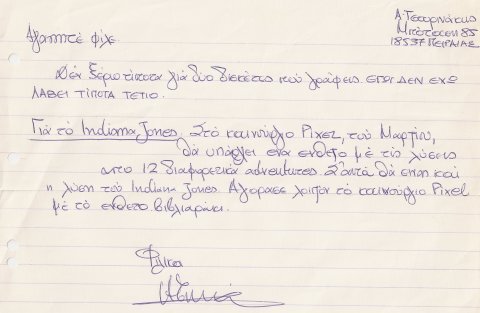 Α. Τσουρινάκης
Μπότσαρη 85
18537 ΠΕΙΡΑΙΑΣ
Αγαπητέ φίλε
Δέν ξέρω τίποτα γιά δύο δισκέτες πού γράφεις. ΕΓΩ ΔΕΝ ΕΧΩ
ΛΑΒΕΙ ΤΙΠΟΤΑ ΤΕΤΙΟ.
Γιά τό Indiana Jones. Στό καινούργιο Pixel, τού Μαρτίου,
θά υπάρχει ένα ένθετο μέ τίς λύσεις
από 12 διαφορετικά adventures. Σ'αυτά θά είναι καί
η λύση τού Indiana Jones. Αγόρασε λοιπόν τό καινούργιο Pixel
μέ τό ένθετο βιβλιαράκι.
Φιλικά